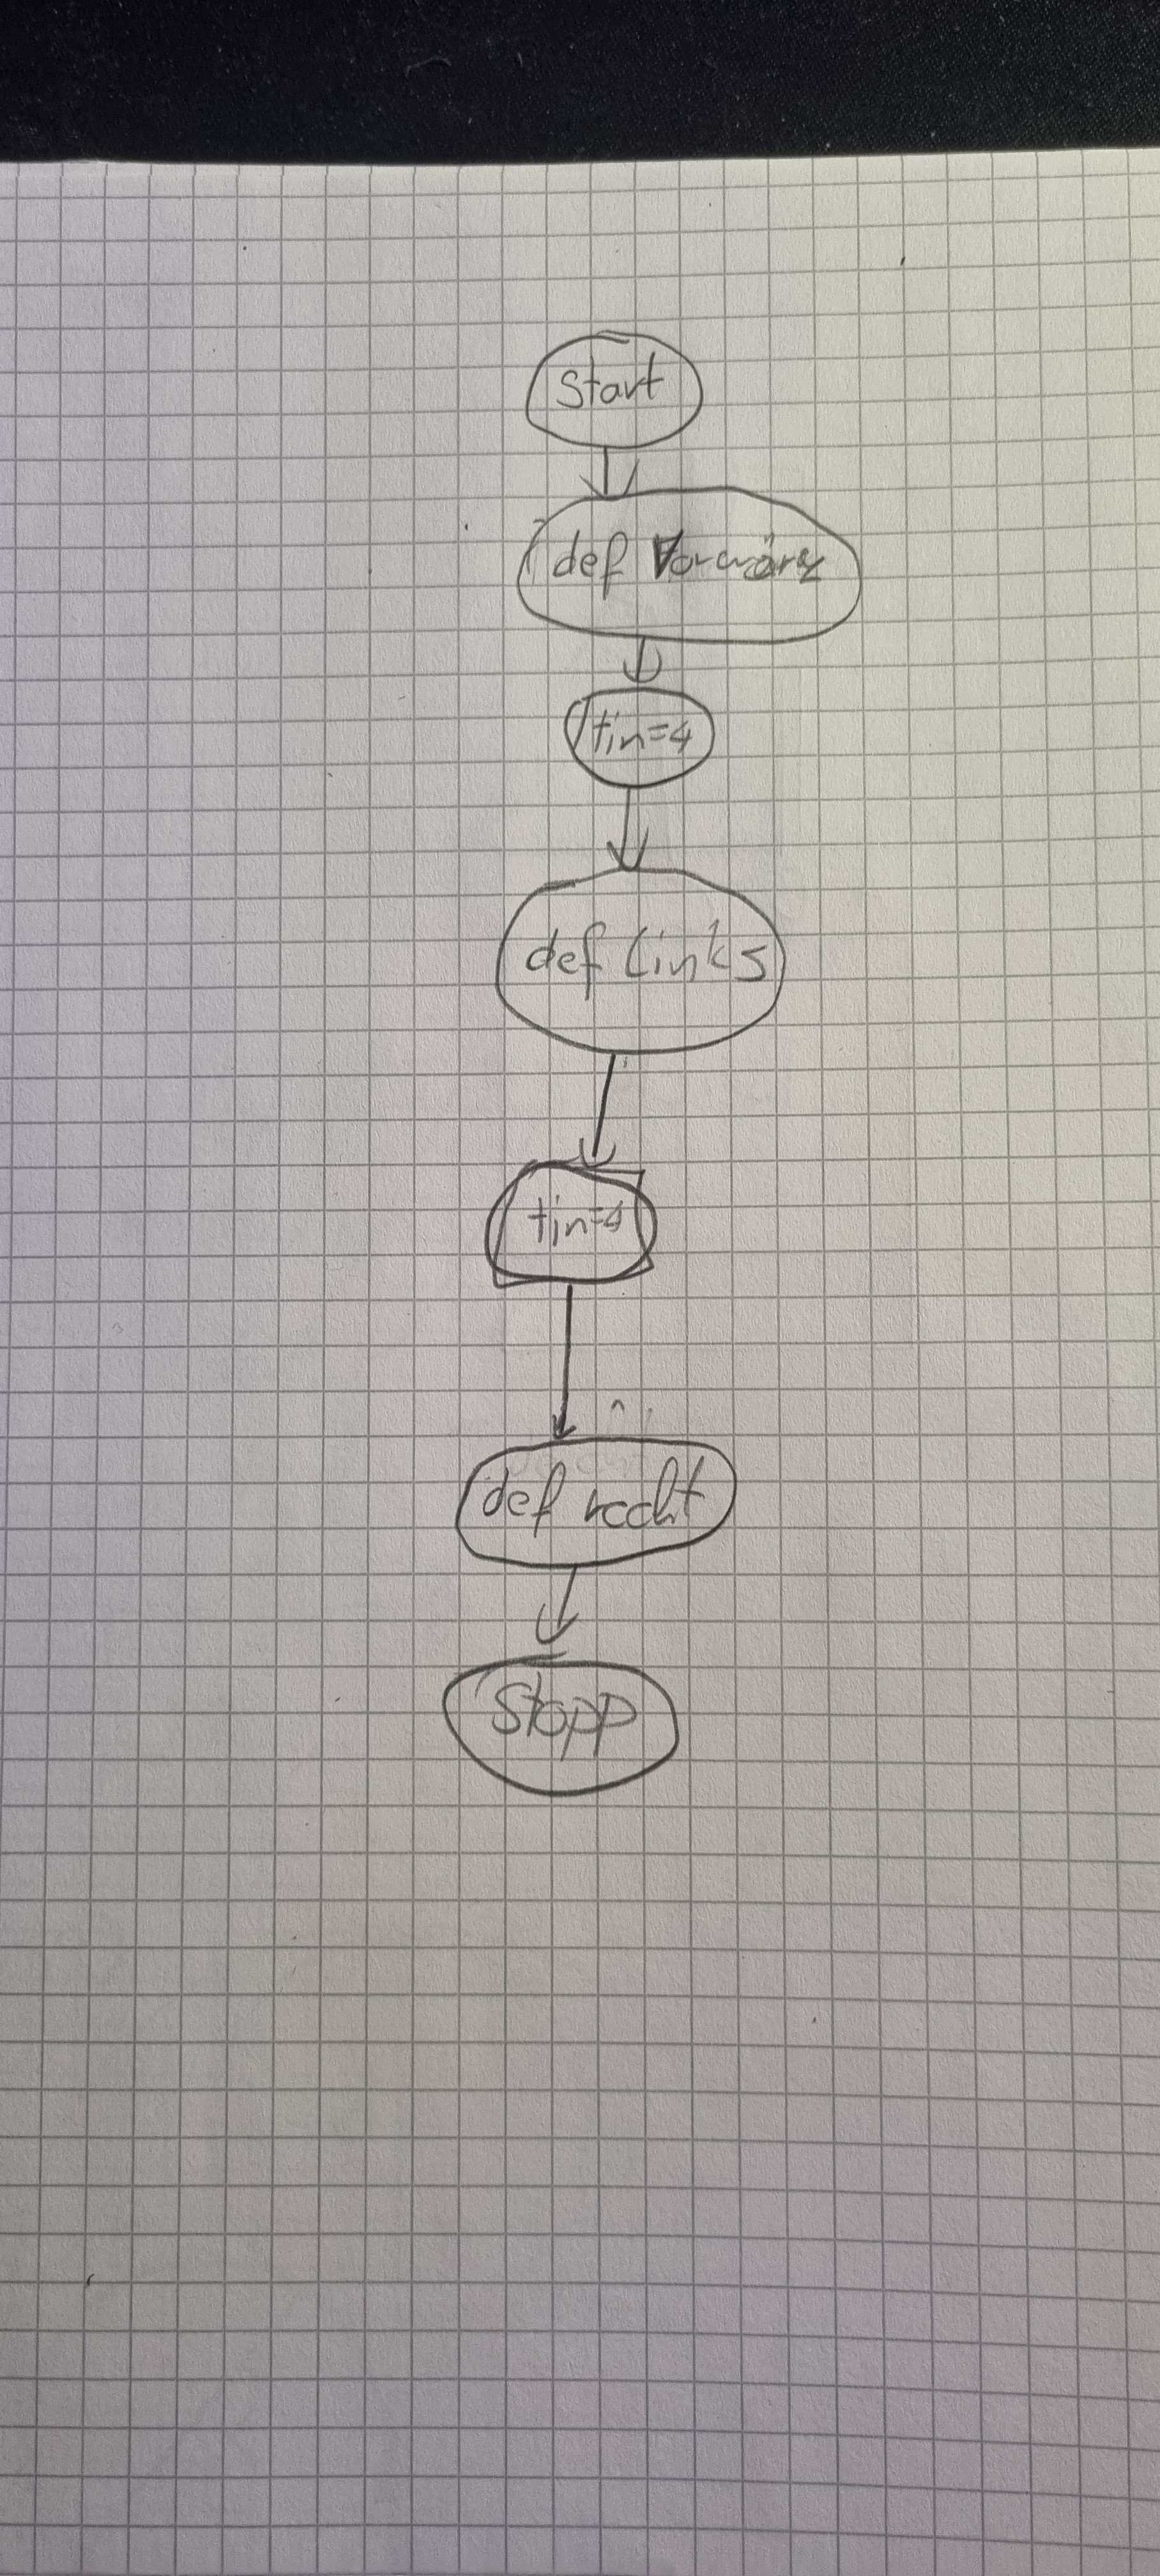 Start
def Vorwärz
tin=4
def links
tin=4
def recht
Stopp